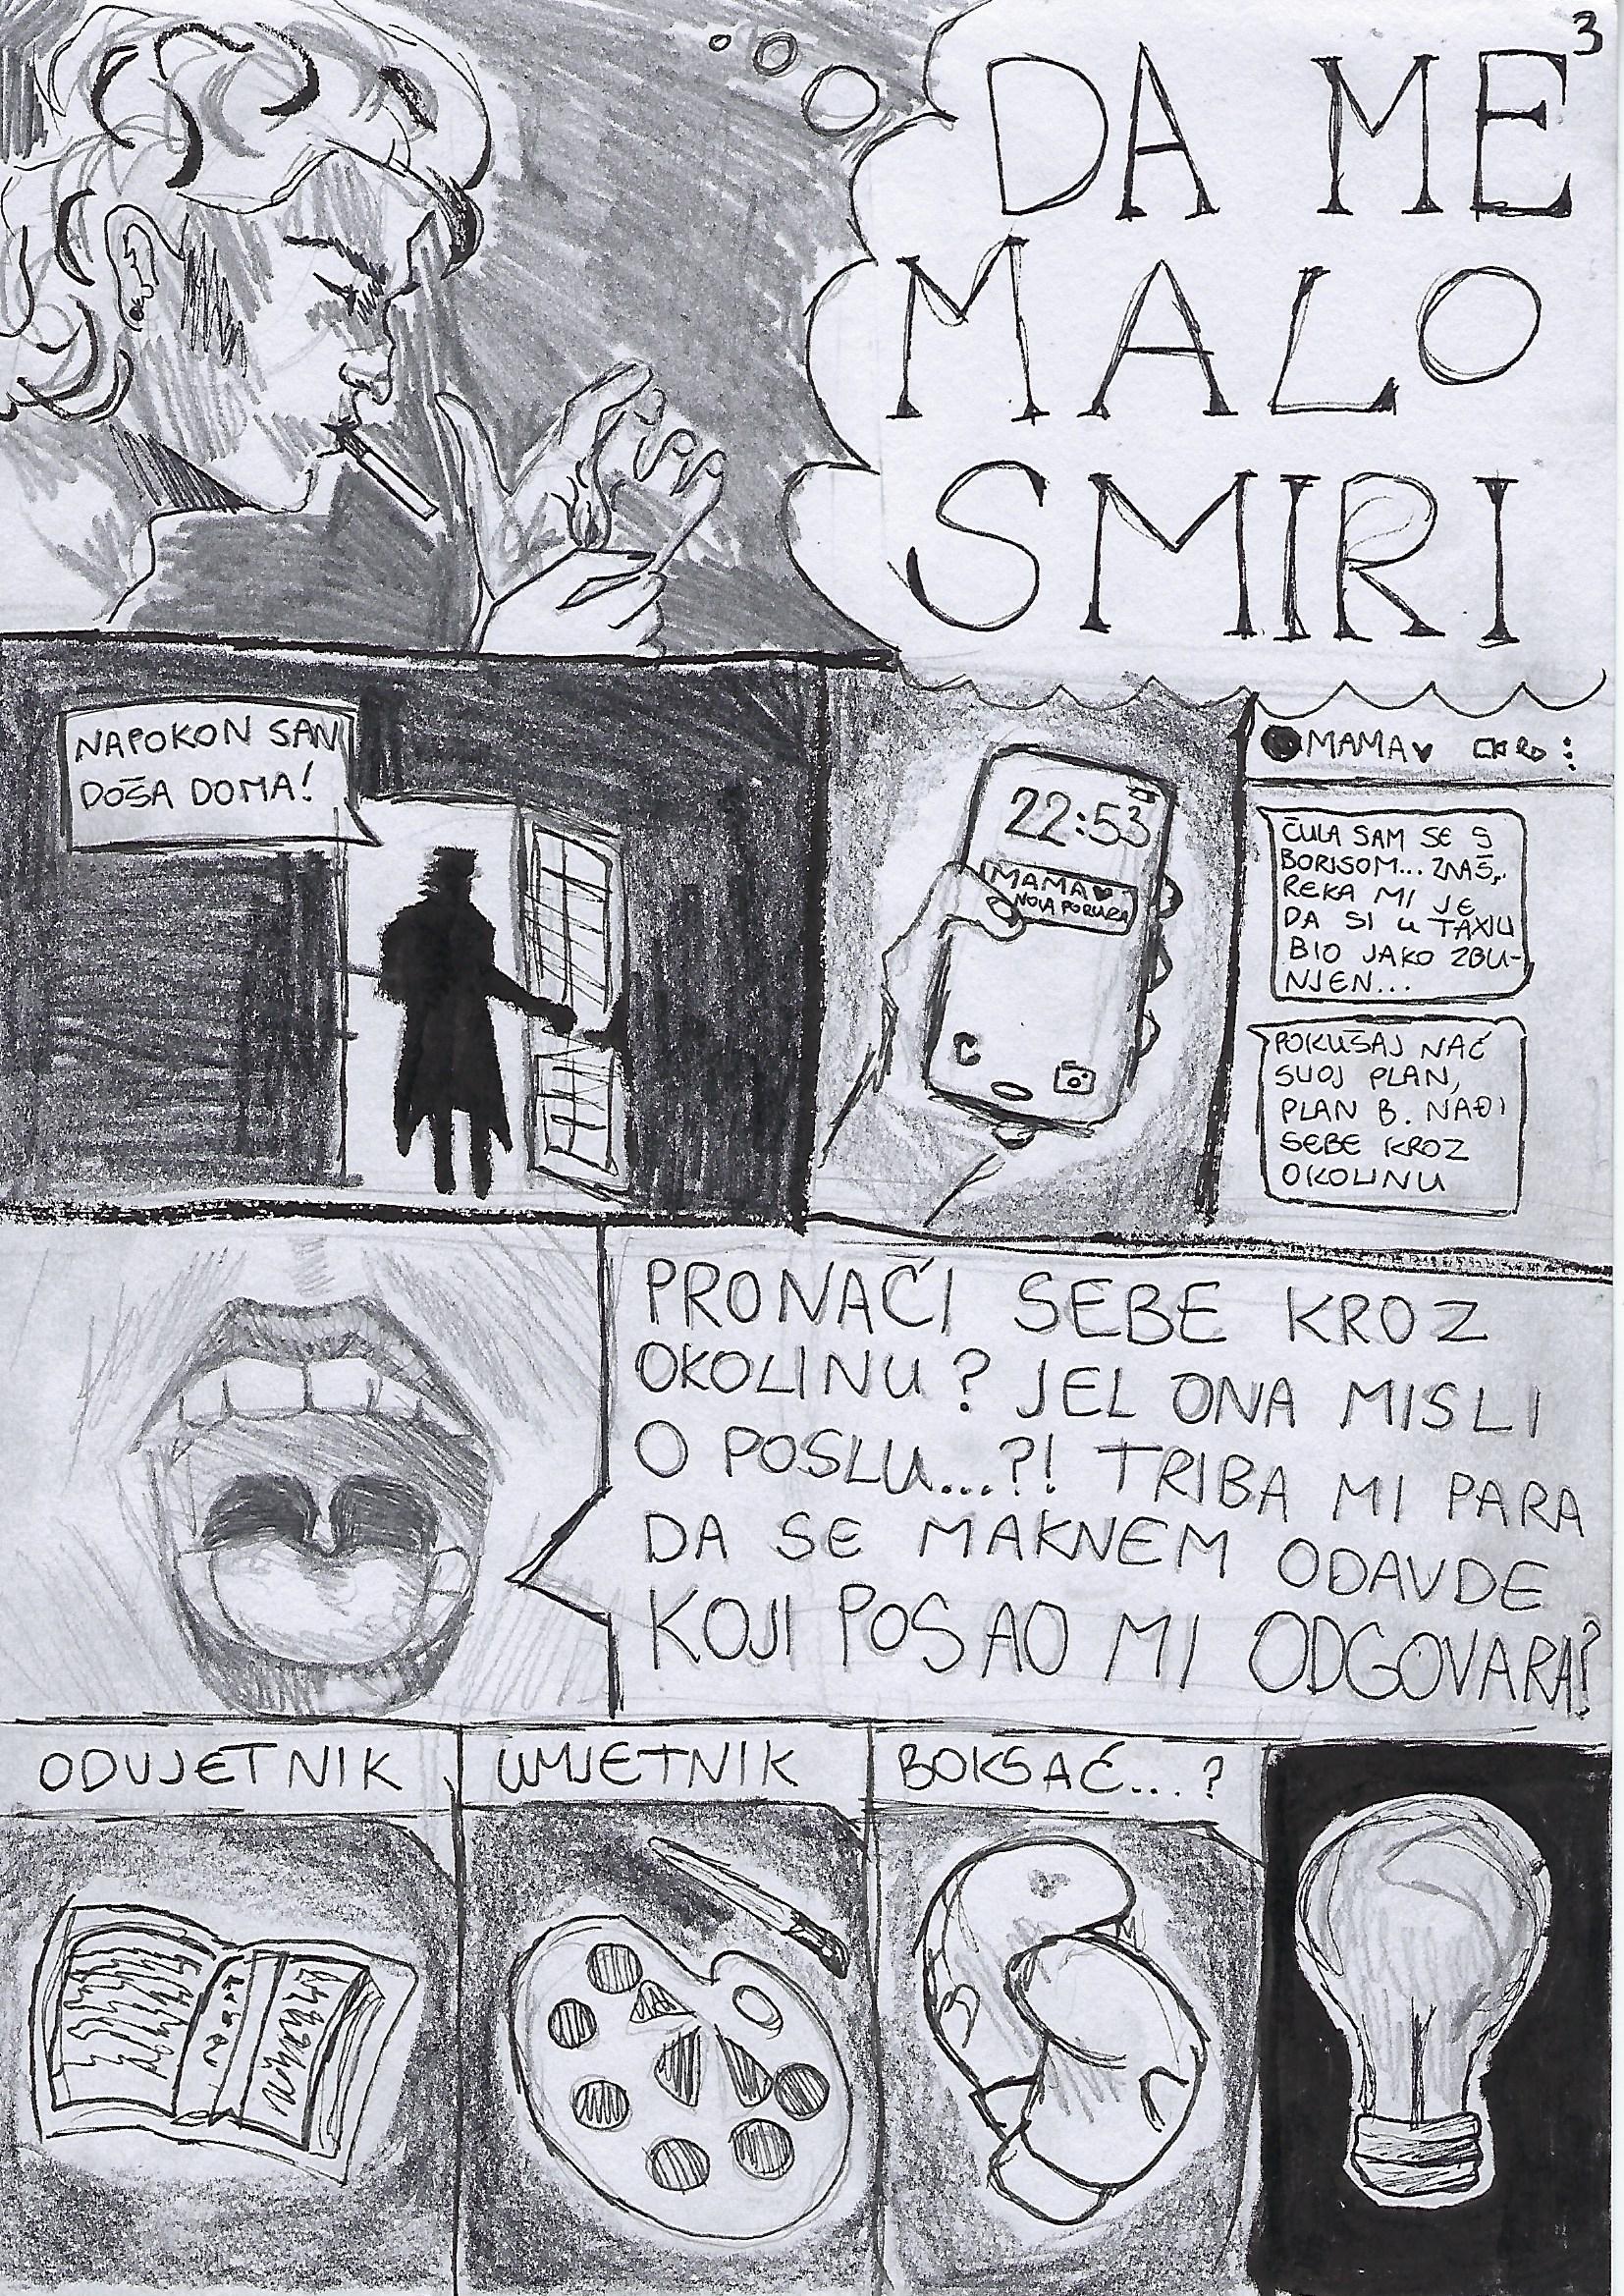 3
DA ME
MALO
SMIRI
NAPOKON SAN
DOŠA DOMA!
22:53
MAMA♥
NOVA PORUKA
MAMA♥
ČULA SAM SE S
BORISOM... ZNAŠ,
REKA MI JE
DA SI U TAXIU
BIO JAKO ZBU-
NJEN...
POKUŠAJ NAĆ
SVOJ PLAN,
PLAN B. NAĐI
SEBE KROZ
OKOLINU
PRONAĆI SEBE KROZ
OKOLINU? JEL ONA MISLI
O POSLU...?! TRIBA MI PARA
DA SE MAKNEM ODAVDE
KOJI POSAO MI ODGOVARA?
ODVJETNIK
UMJETNIK
BOKSAĆ...?